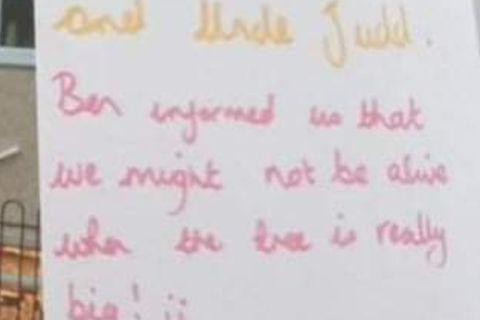 and Uncle Judd.
Ben informed us that
we might not be alive
when the tree is really
big! ü